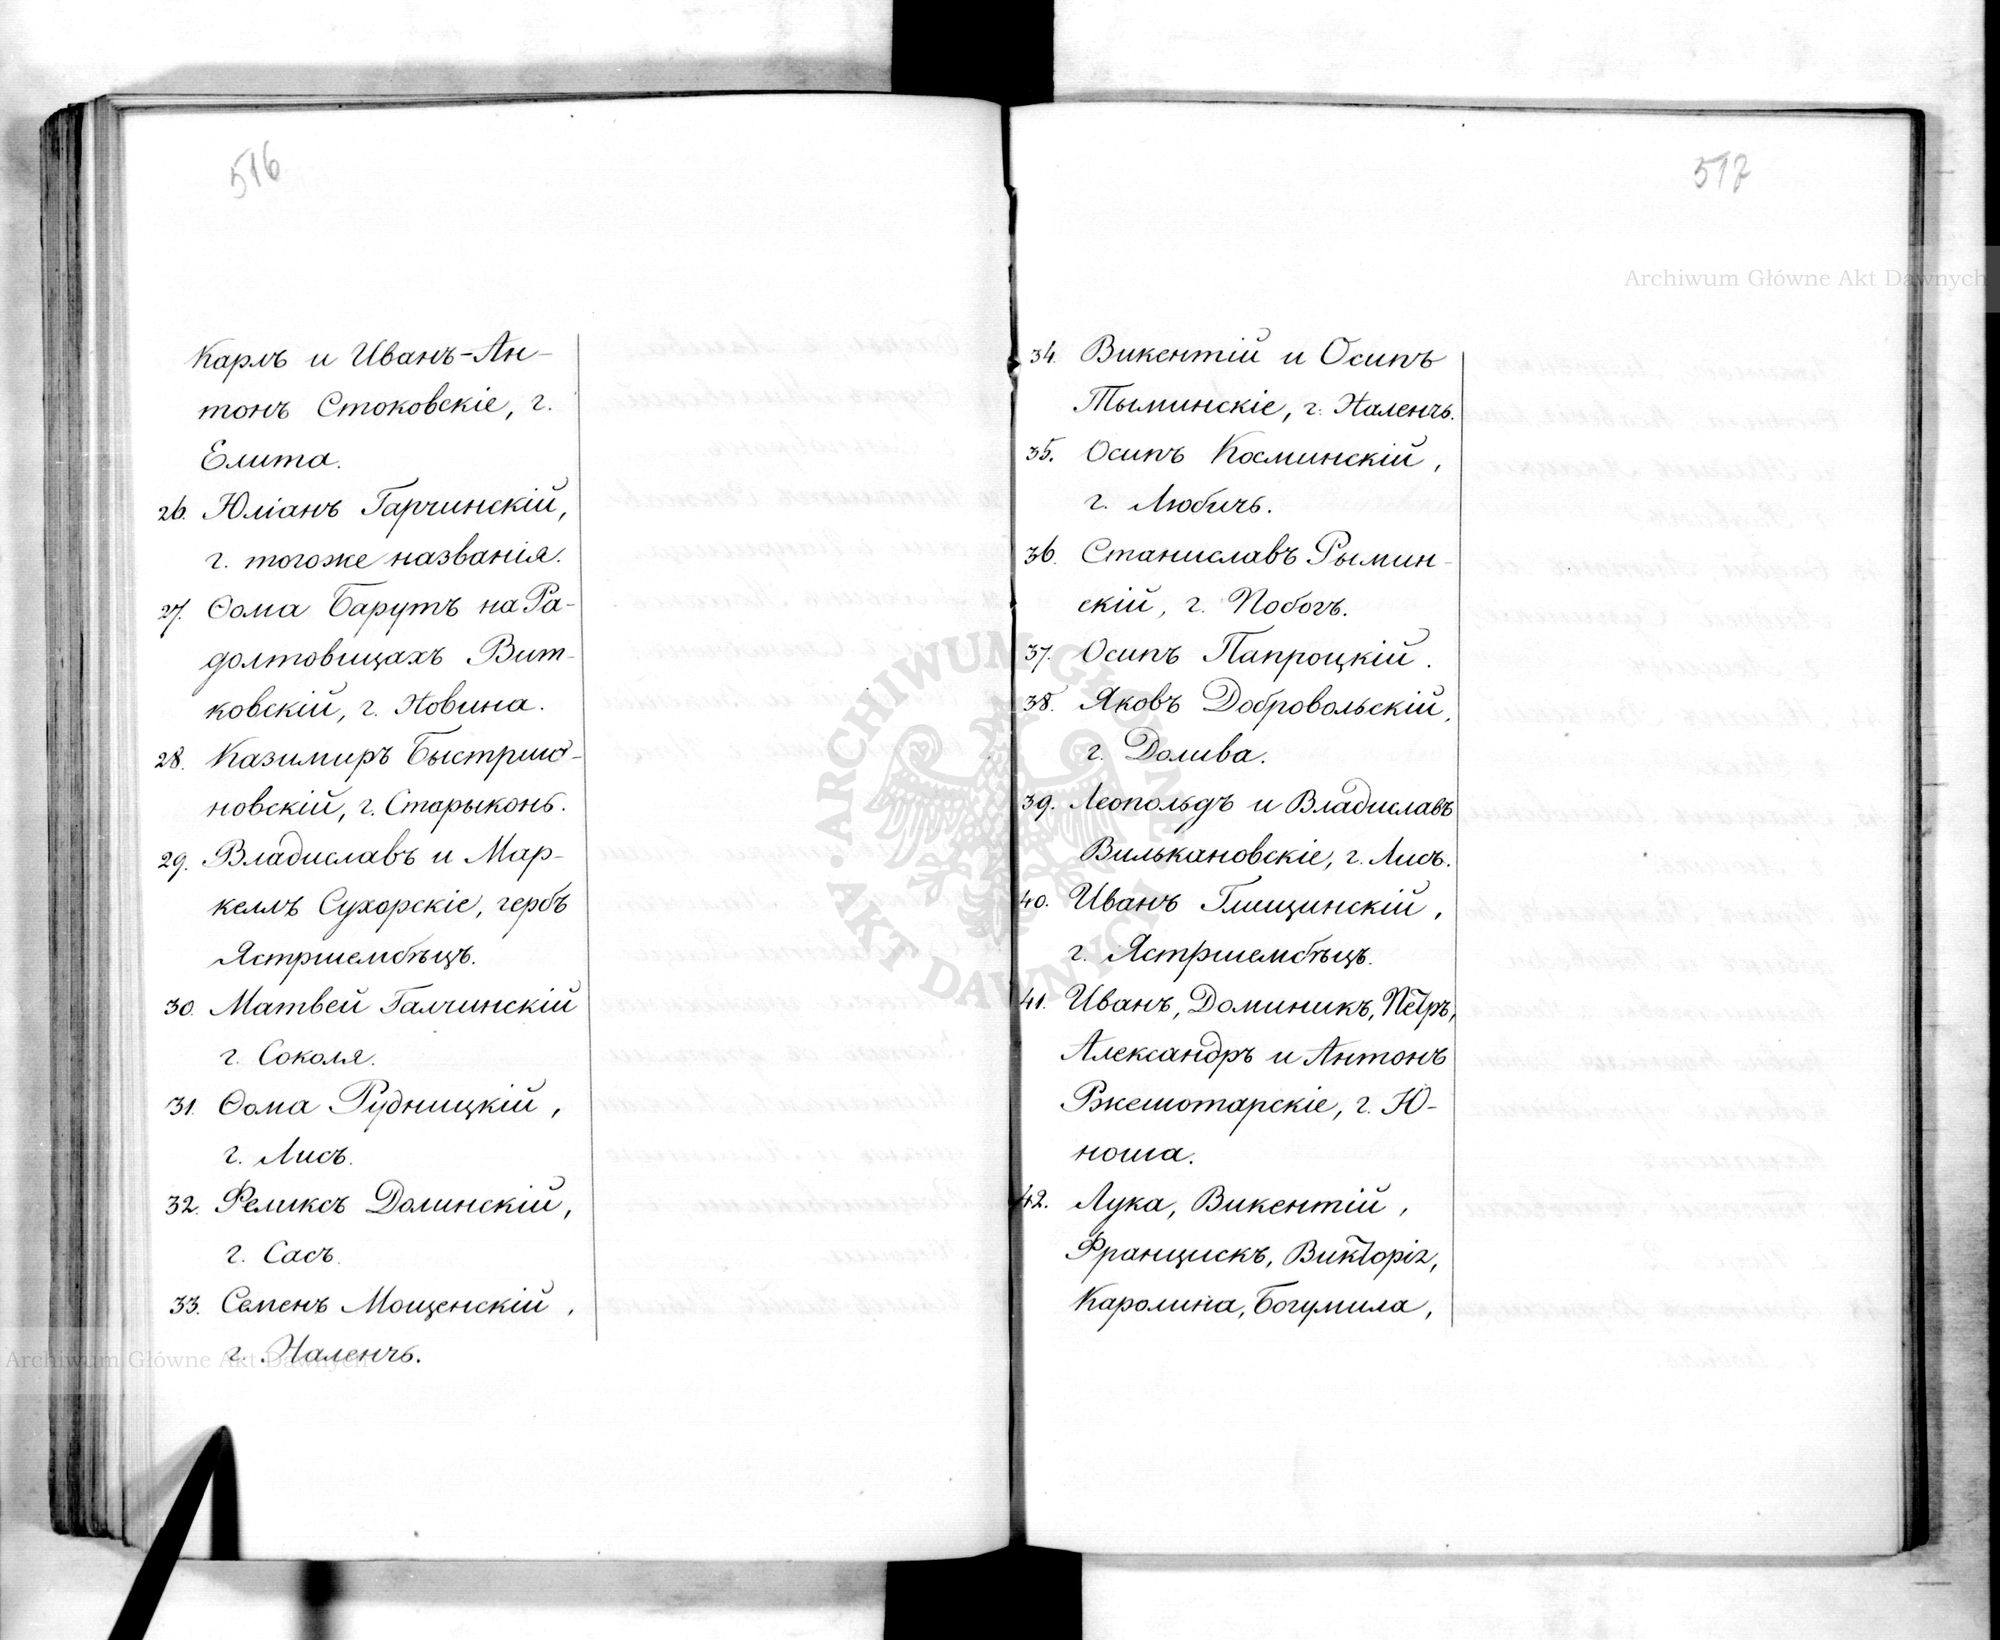 516
Карлъ и Иванъ-Ан-
тонъ Стоковскіе, г.
Елита.
26. Юліанъ Гарчинскій,
г. тогоже названія.
27. Ѳома Барутъ на Ра-
долтовицахъ Вит-
ковскій, г. Новина.
28. Казимиръ Быстрио-
новскій, г. Старыконь.
29. Владиславъ и Мар-
келлъ Сухорскіе, гербъ
Ястршембѣцъ.
30. Матвей Галчинскій
г. Соколя.
31. Ѳома Рудницкій,
г. Лисъ.
32. Феликсъ Долинскій,
г. Сасъ.
33. Семенъ Мощенскій,
г. Наленчъ.
517
34. Викентій и Осипъ
Тыминскіе, г. Наленчъ.
35. Осипъ Косминскій,
г. Любичъ.
36. Станиславъ Рымин-
скій, г. Побогъ.
37. Осипъ Папроцкій.
38. Яковъ Добровольскій,
г. Долива.
39. Леопольдъ и Владиславъ
Вилькановскіе, г. Лисъ.
40. Иванъ Глищинскій,
г. Ястршембѣцъ.
41. Иванъ, Доминикъ, Петръ,
Александръ и Антонъ
Ржешотарскіе, г. Ю-
ноша.
42. Лука, Викентій,
Францискъ, Викторія,
Каролина, Богумила,
Archiwum Główne Akt Dawnych
Archiwum Główne Akt Dawnych
ARCHIWUM GŁÓWNE AKT DAWNYCH